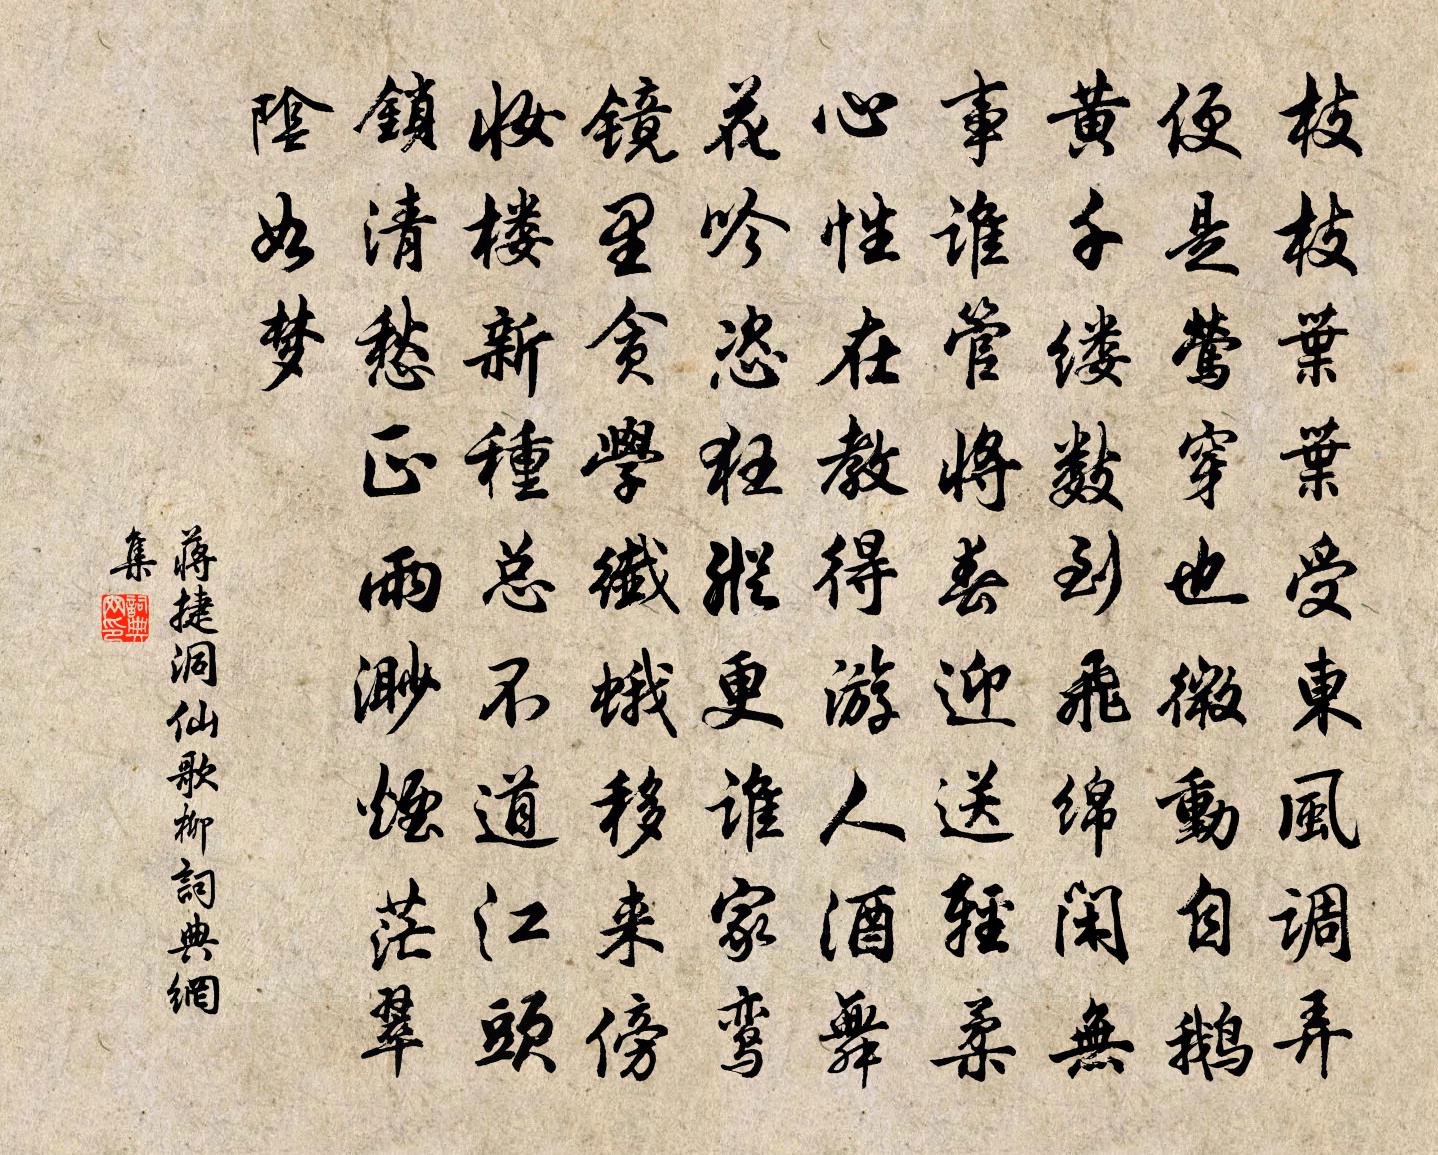 枝枝葉葉受東風調弄
便是鶯穿也微動自鹅
黄千缕數到飛绵閑無
事谁管将春迎送輕柔
心性在教得游人酒舞
花吟恣狂縱更谁家鸾
镜里贪學纖蛾移来傍
妝楼新種总不道江頭
鎖清愁正雨渺煙茫翠
陰如梦
蒋捷洞仙歌柳詞典網
集
詞典
网印